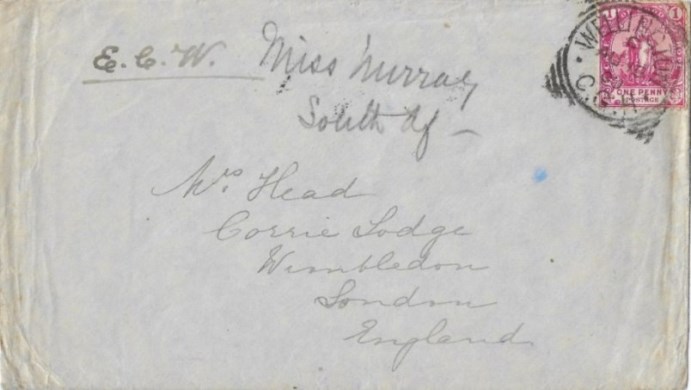 E.C.W. Miss Murray
South Af
Mrs. Head
Corrie Lodge
Wimbledon
London
England
1 1
ONE PENNY
POSTAGE